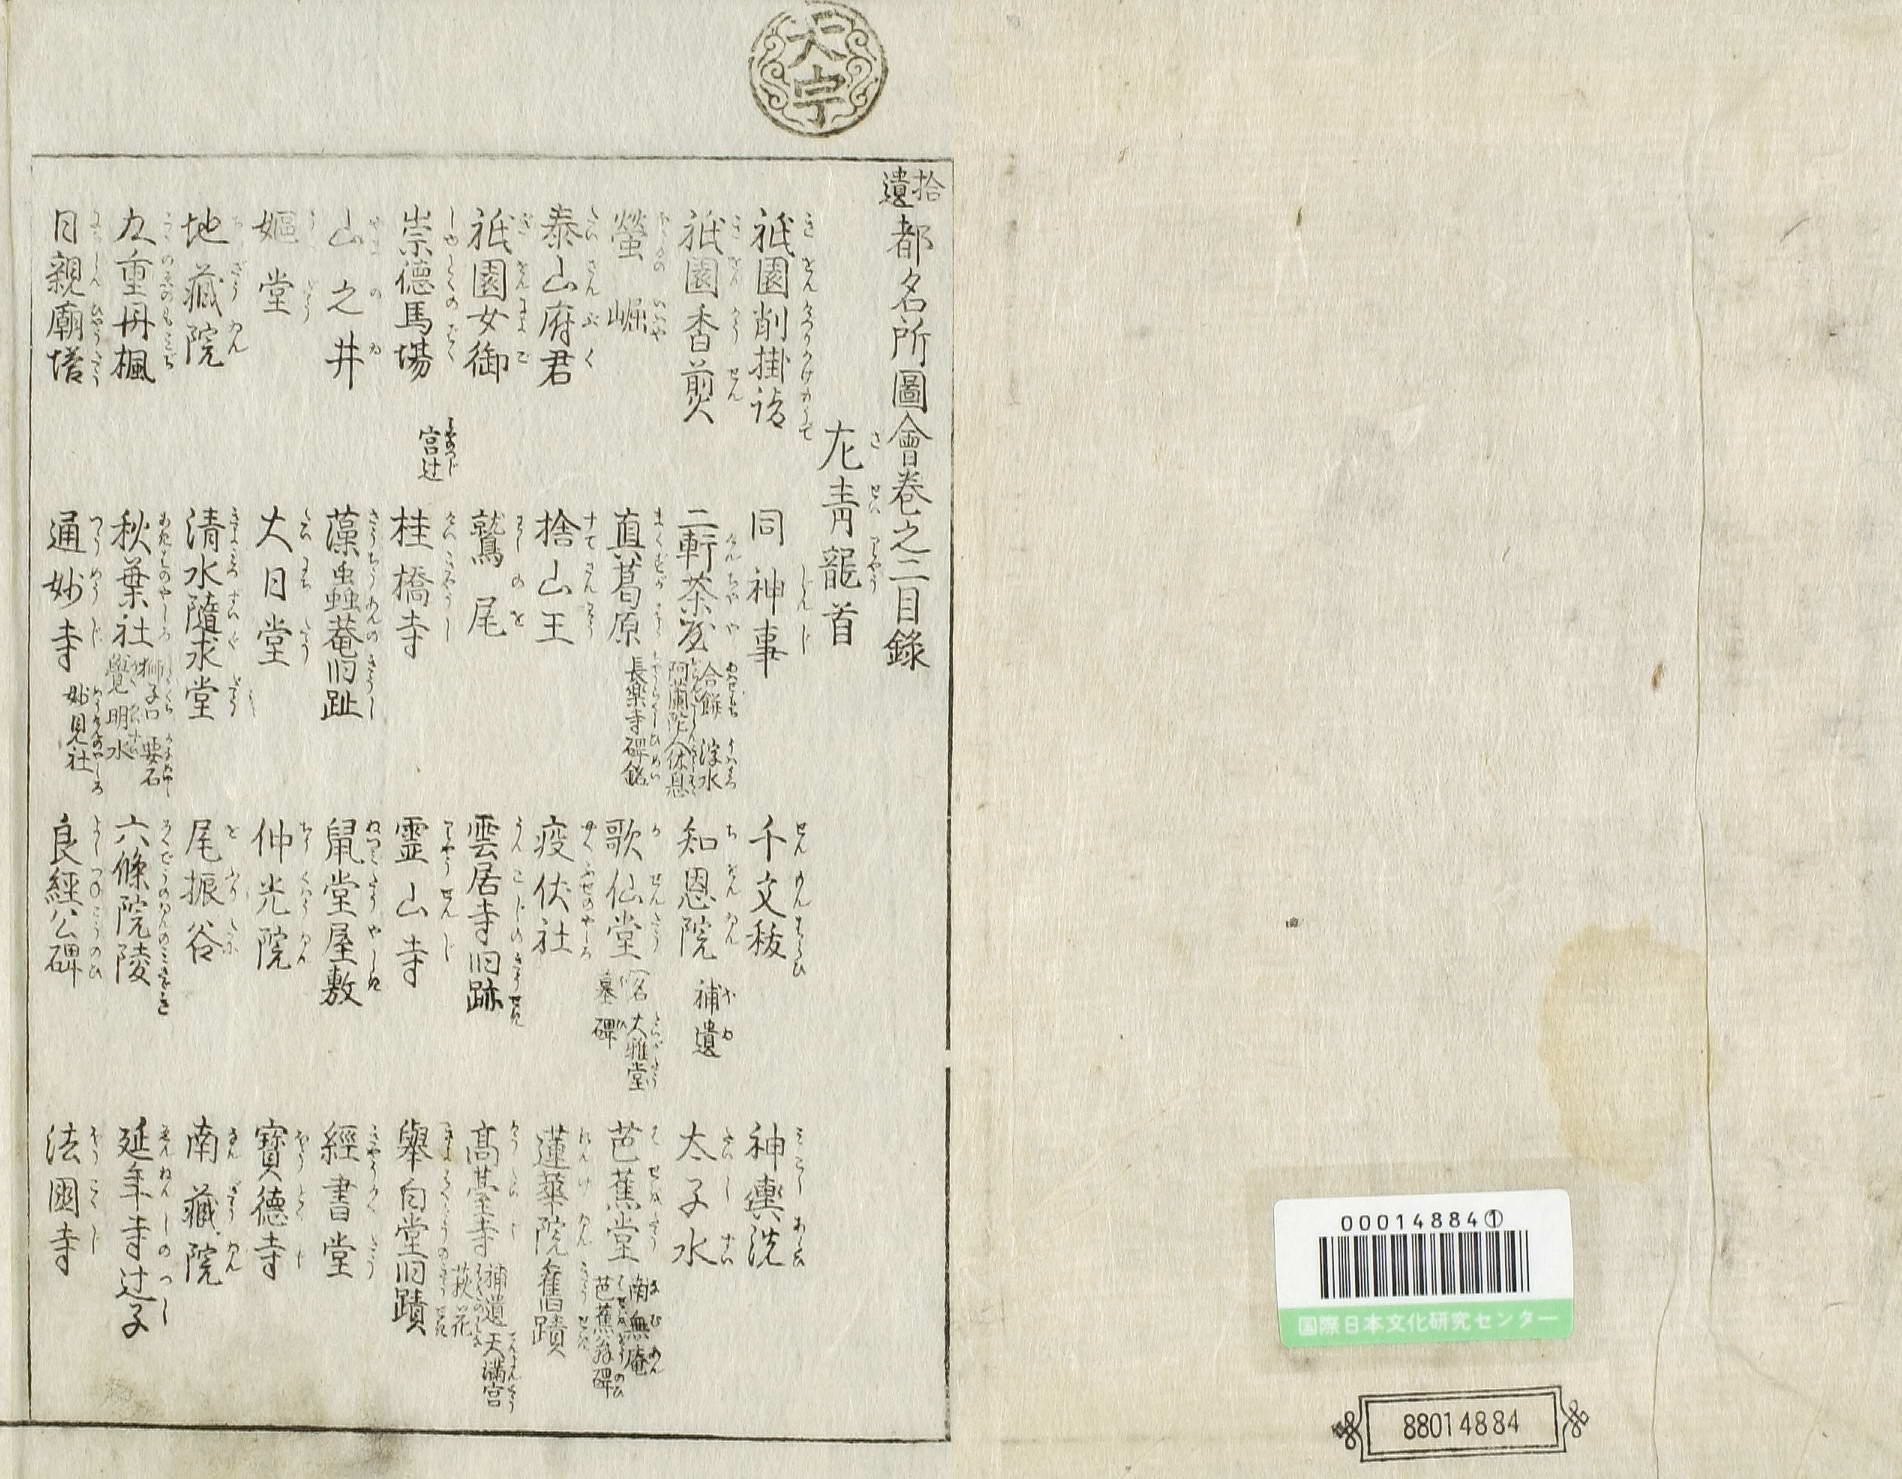 大宇
拾遺都名所圖會卷之二目錄
左青龍首
祇園削掛詣
同神事
千文秡
神輿洗
祇園香煎
二軒茶屋 合餅 浮水 阿蘭陀人休息
知恩院 補遺
太子水
螢崛
真葛原 長樂寺碑銘
歌仙堂 一名大雅堂 墓碑
芭蕉堂 南無庵 芭蕉翁碑
泰山府君
捨山王
疫伏社
蓮華院舊蹟
祇園女御
鷲尾
雲居寺旧跡
高臺寺 補遺 天滿宮 萩花
崇德馬場 宮辻
桂橋寺
霊山寺
擧白堂旧蹟
山之井
藻蟲菴旧趾
鼠堂屋敷
經書堂
嫗堂
大日堂
仲光院
寶德寺
地藏院
清水隨求堂
尾振谷
南藏院
九重丹楓
秋葉社 獅子口 要石 覺明水
六條院陵
延年寺辻子
日親廟塔
通妙寺 妙見社
良經公碑
法國寺
00014884①
国際日本文化研究センター
88014884